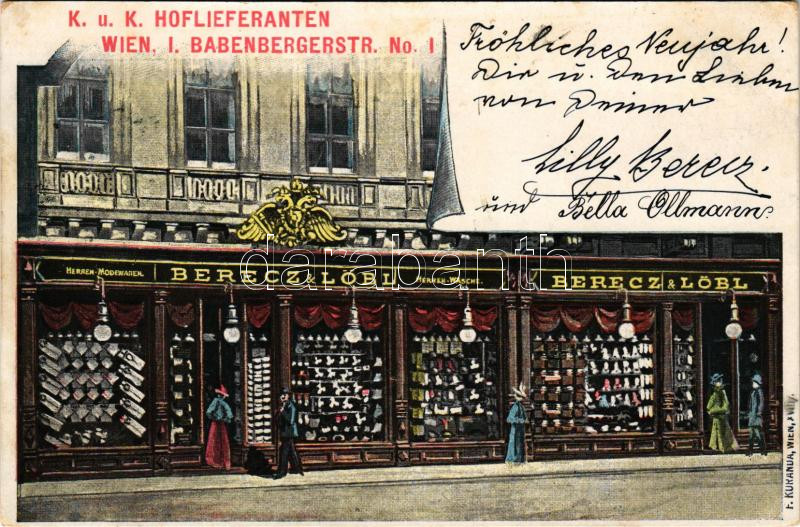 K. u. K. HOFLIEFERANTEN
WIEN, I. BABENBERGERSTR. No. 1
Fröhliches Neujahr!
Dir u. Den Lieben
von Deiner
Lilly Berecz.
und Bella Ollmann.
HERREN-MODEWAREN. BERECZ & LÖBL HERREN-WÄSCHE. BERECZ & LÖBL
darabanth
F. KURANDA, WIEN,